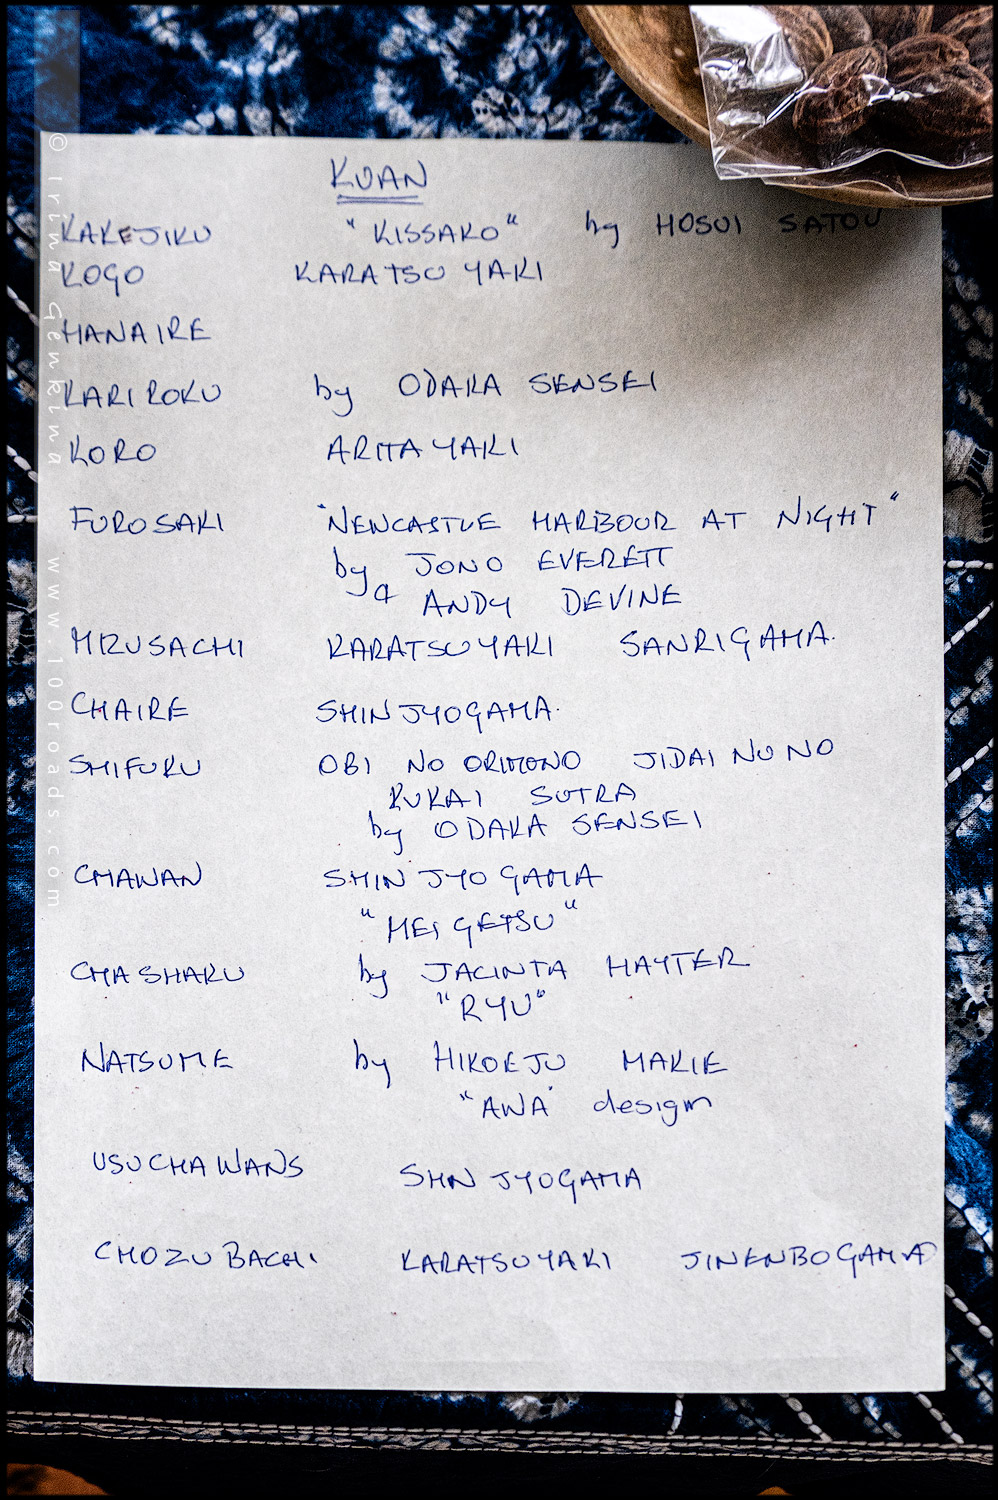 KUAN
KAKEJIKU "KISSAKO" by HOSUI SATOU
KOGO KARATSU YAKI
HANAIRE
KARIROKU by ODAKA SENSEI
KORO ARITA YAKI
FUROSAKI "NEWCASTLE HARBOUR AT NIGHT"
by JONO EVERETT
& ANDY DEVINE
MIZUSACHI KARATSUYAKI SANRIGAMA.
CHAIRE SHINJYOGAMA.
SHIFUKU OBI NO ORIMONO JIDAI NUNO
KUKAI SUTRA
by ODAKA SENSEI
CHAWAN SHINJYOGAMA
"MEIGETSU"
CHASHAKU by JACINTA HAYTER
"RYU"
NATSUME by HIKOEJU MAKIE
"AWA" design
USUCHAWANS SHINJYOGAMA
CHOZUBACHI KARATSUYAKI JINENBOGAMA
© Irina Genkina www.100roads.com